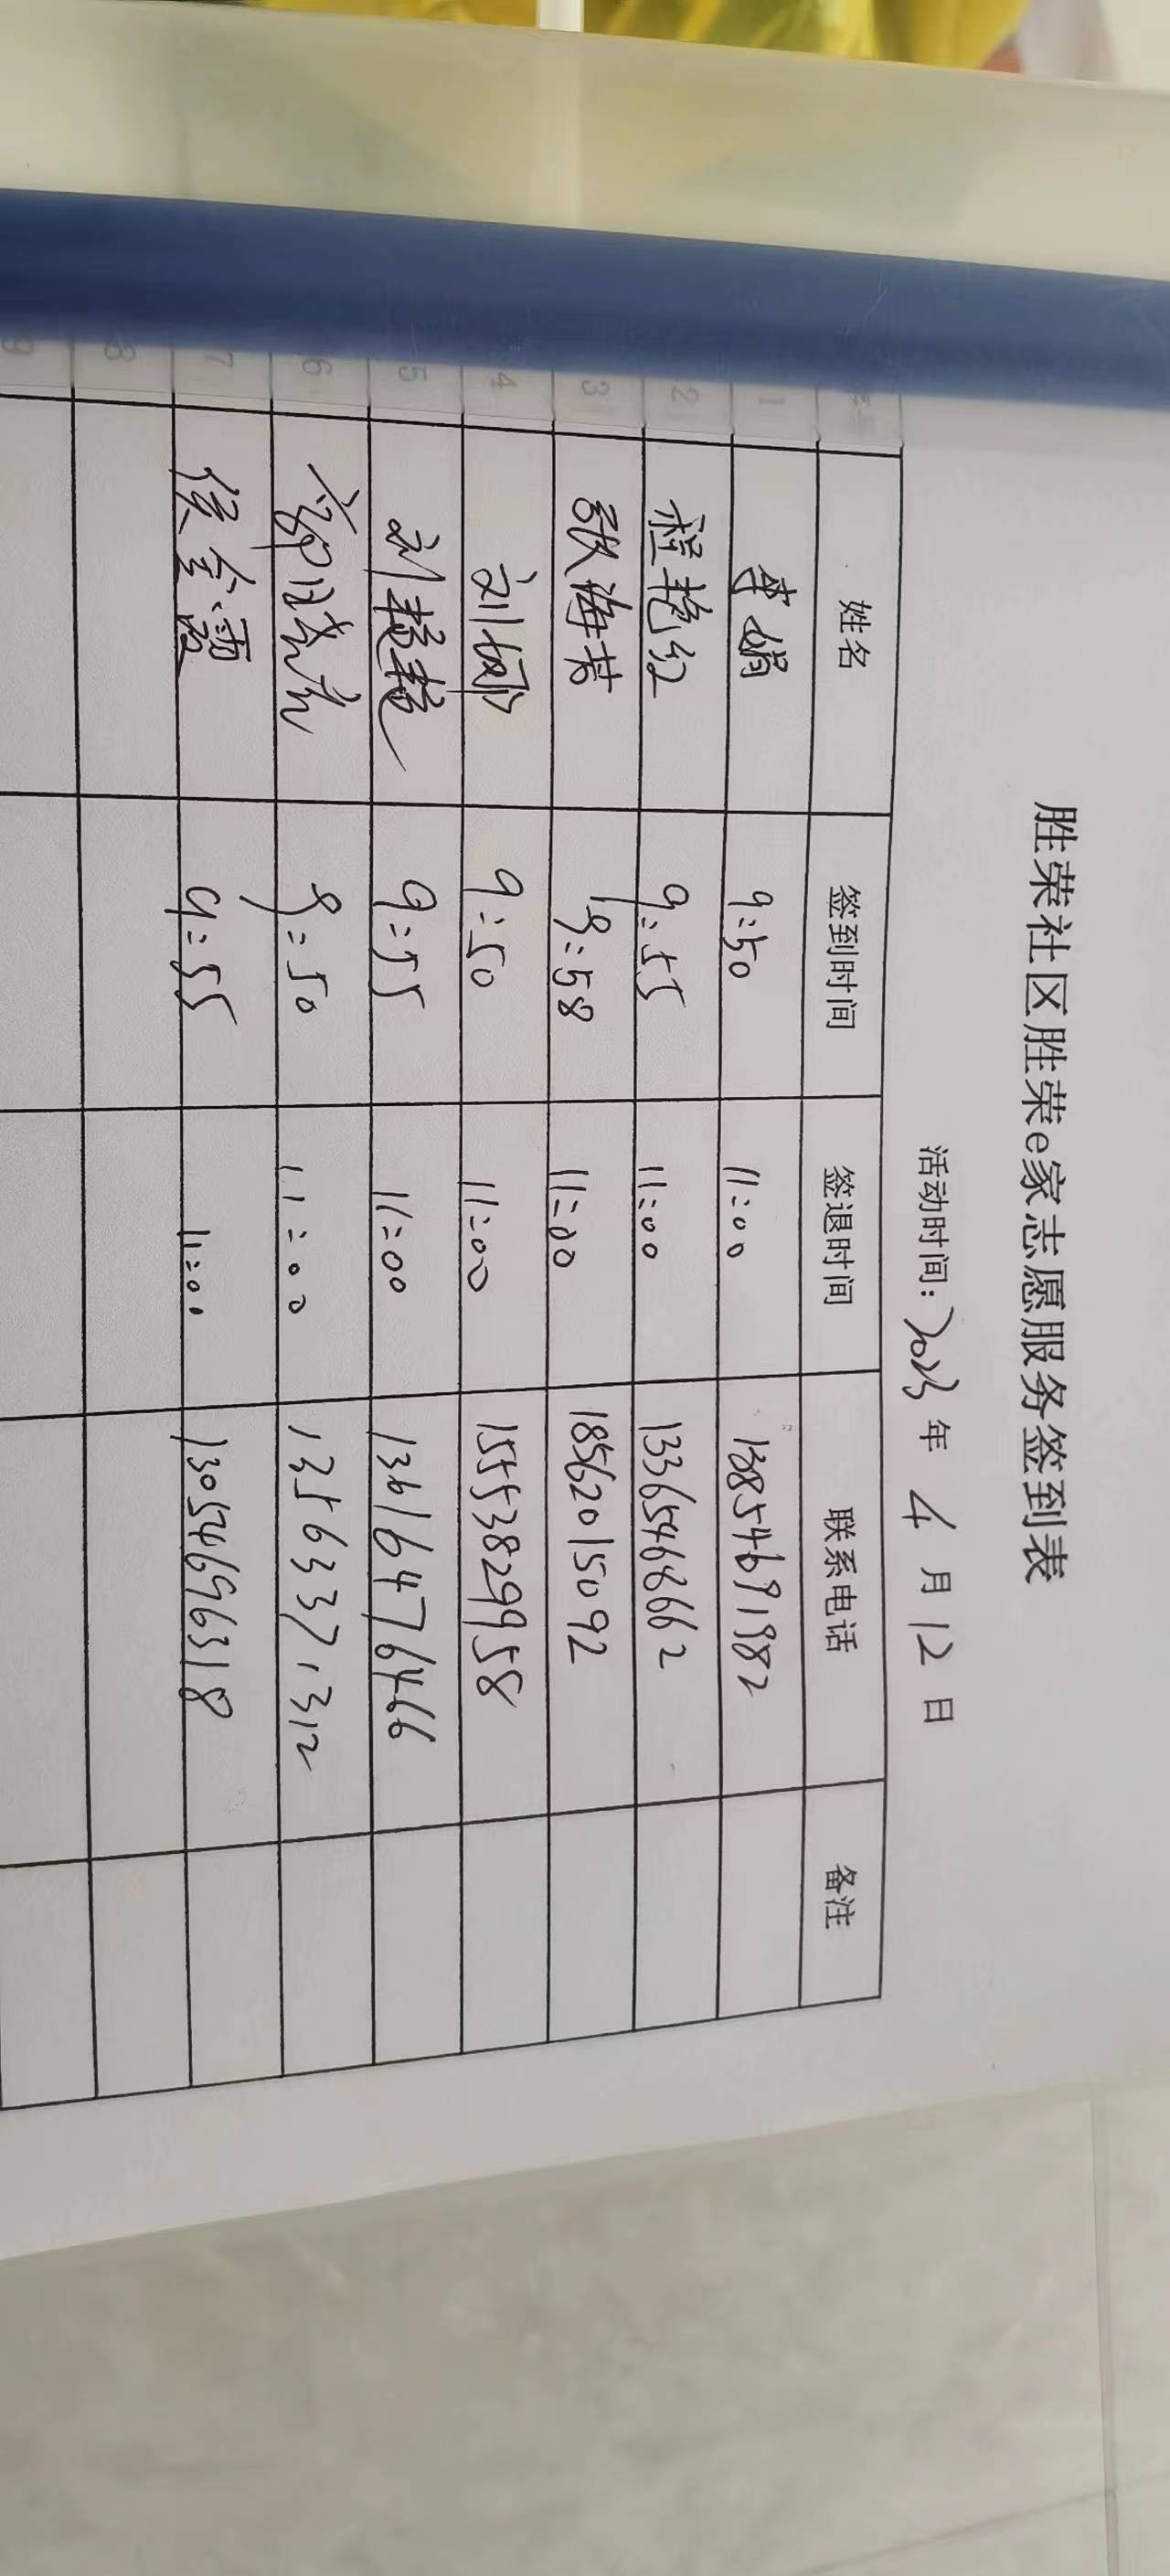 胜荣社区胜荣e家志愿服务签到表
活动时间：2023年 4 月 12 日
姓名 签到时间 签退时间 联系电话 备注
1 李娟 9:50 11:00 13854691982
2 程艳红 9:55 11:00 13365468662
3 张海芳 9:58 11:00 18562015092
4 刘娜 9:50 11:00 15553829958
5 刘艳艳 9:55 11:00 13616476466
6 9:50 11:00 13563371312
7 侯金霞 9:55 11:00 13054696318
8
9